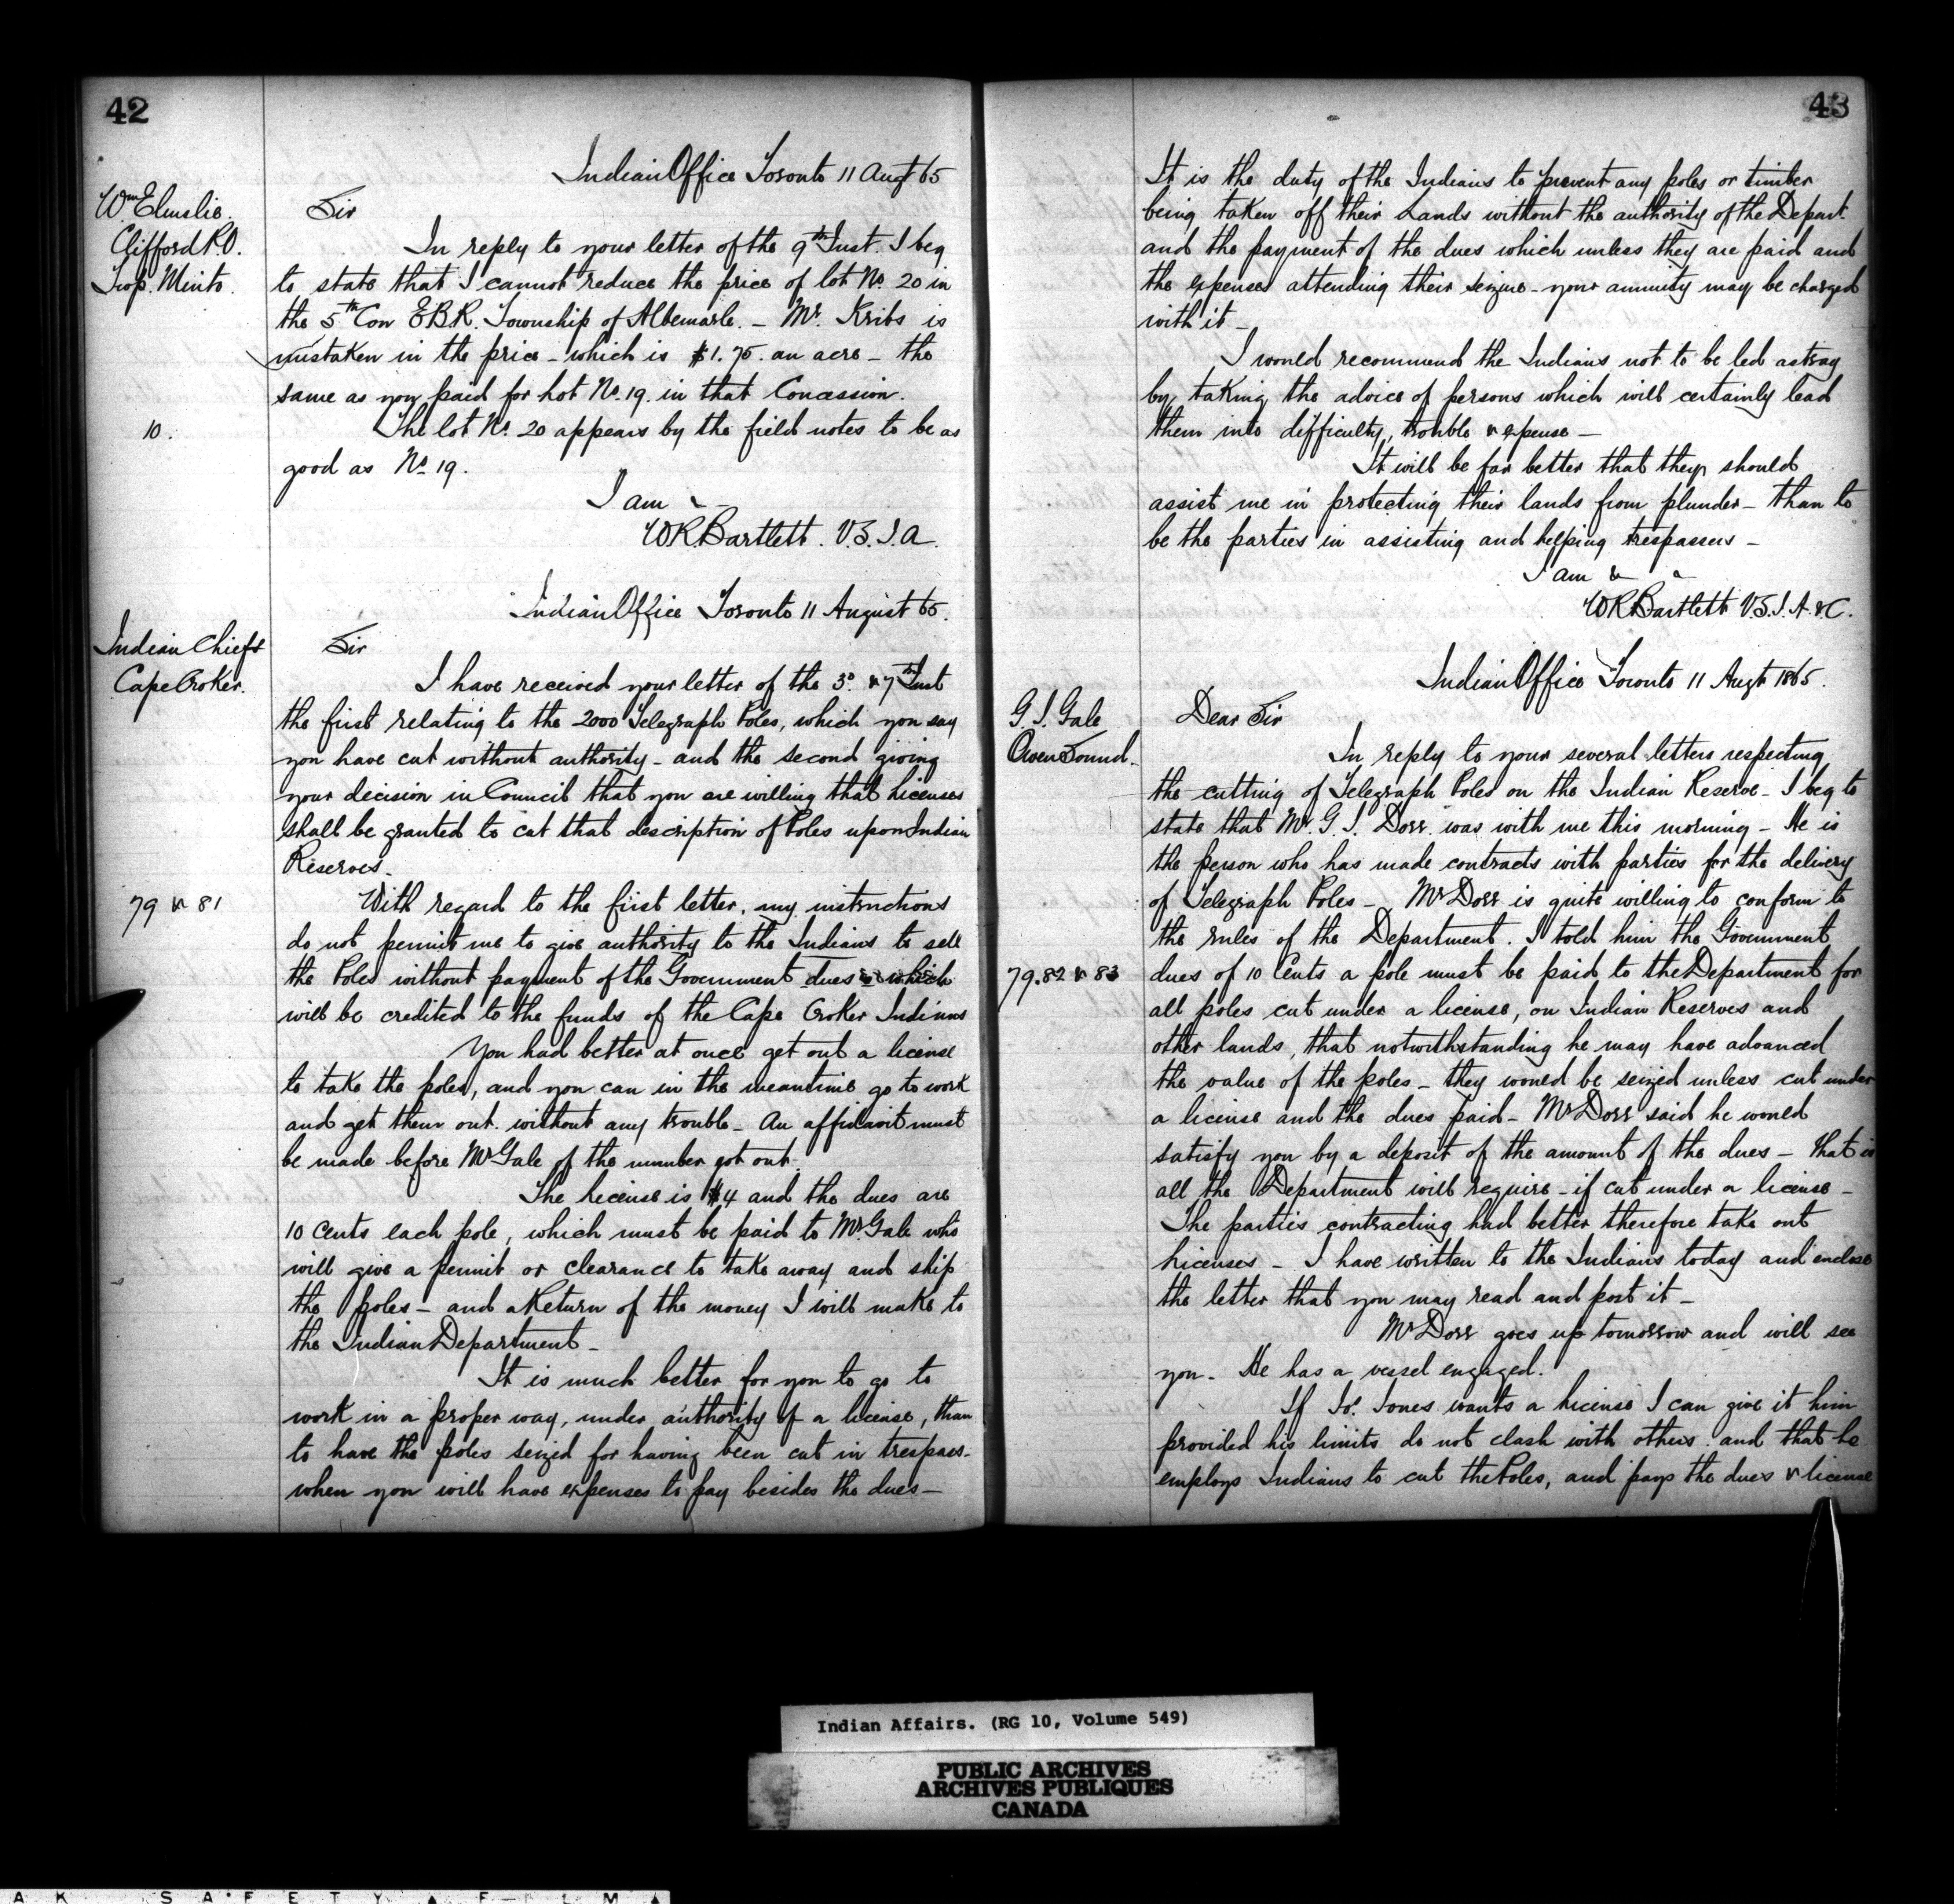 42
Indian Office Toronto 11 Augt 65
Wm Elmslie.
Clifford P.O.
Twp. Minto.
Sir
In reply to your letter of the 9th Inst. I beg
to state that I cannot reduce the price of lot No. 20 in
the 5th Con E.B.R. Township of Albemarle. – Mr. Kribs is
mistaken in the price – which is $1.75. an acre – the
same as you paid for Lot No. 19. in that Concession.
10.
The lot No. 20 appears by the field notes to be as
good as No 19.
I am &
W.R. Bartlett. V.S.I.A.
Indian Office Toronto 11 August 65.
Indian Chiefs
Cape Croker.
Sir
I have received your letter of the 3d. & 7th Inst
the first relating to the 2000 Telegraph Poles, which you say
you have cut without authority – and the second giving
your decision in Council that you are willing that Licenses
shall be granted to cut that description of Poles upon Indian
Reserves –
79 & 81
With regard to the first letter, my instructions
do not permit me to give authority to the Indians to sell
the Poles without payment of the Government dues – which
will be credited to the funds of the Cape Croker Indians
You had better at once get out a license
to take the poles, and you can in the meantime go to work
and get them out. without any trouble – An affidavit must
be made before Mr Gale of the number got out.
The License is $4 and the dues are
10 cents each pole, which must be paid to Mr. Gale who
will give a permit or clearance to take away and ship
the poles – and a Return of the money I will make to
the Indian Department –
It is much better for you to go to
work in a proper way, under authority of a license, than
to have the poles seized for having been cut in trespass –
when you will have expenses to pay besides the dues –
43
It is the duty of the Indians to prevent any poles or timber
being taken off their Lands without the authority of the Depart.
and the payment of the dues which unless they are paid and
the expenses attending their seizure – your annuity may be charged
with it –
I would recommend the Indians not to be led astray
by taking the advice of persons which will certainly lead
them into difficulty, trouble & expense –
It will be far better that they should
assist me in protecting their lands from plunder – than to
be the parties in assisting and helping trespassers –
I am &
W.R. Bartlett V.S.I.A. &C.
Indian Office Toronto 11 Augt 1865.
G.J. Gale
Owen Sound.
Dear Sir
In reply to your several letters respecting
the cutting of Telegraph Poles on the Indian Reserve – I beg to
state that Mr. G.J. Dorr. was with me this morning – He is
the person who has made contracts with parties for the delivery
of Telegraph Poles – Mr Dorr is quite willing to conform to
the rules of the Department. I told him the Government
79.82 & 83
dues of 10 Cents a pole must be paid to the Department for
all poles cut under a license, on Indian Reserves and
other lands, that notwithstanding he may have advanced
the value of the poles – they would be seized unless cut under
a license and the dues paid – Mr Dorr said he would
satisfy you by a deposit of the amount of the dues – that is
all the Department will require – if cut under a license –
The parties contracting had better therefore take out
Licenses – I have written to the Indians today and enclose
the letter that you may read and post it –
Mr Dorr goes up tomorrow and will see
you – He has a vessel engaged.
If Jos. Jones wants a License I can give it him
provided his limits do not clash with others. and that he
employs Indians to cut the Poles, and pays the dues & license
Indian Affairs. (RG 10, Volume 549)
PUBLIC ARCHIVES
ARCHIVES PUBLIQUES
CANADA
A K SAFETY ▲ FILM ▲